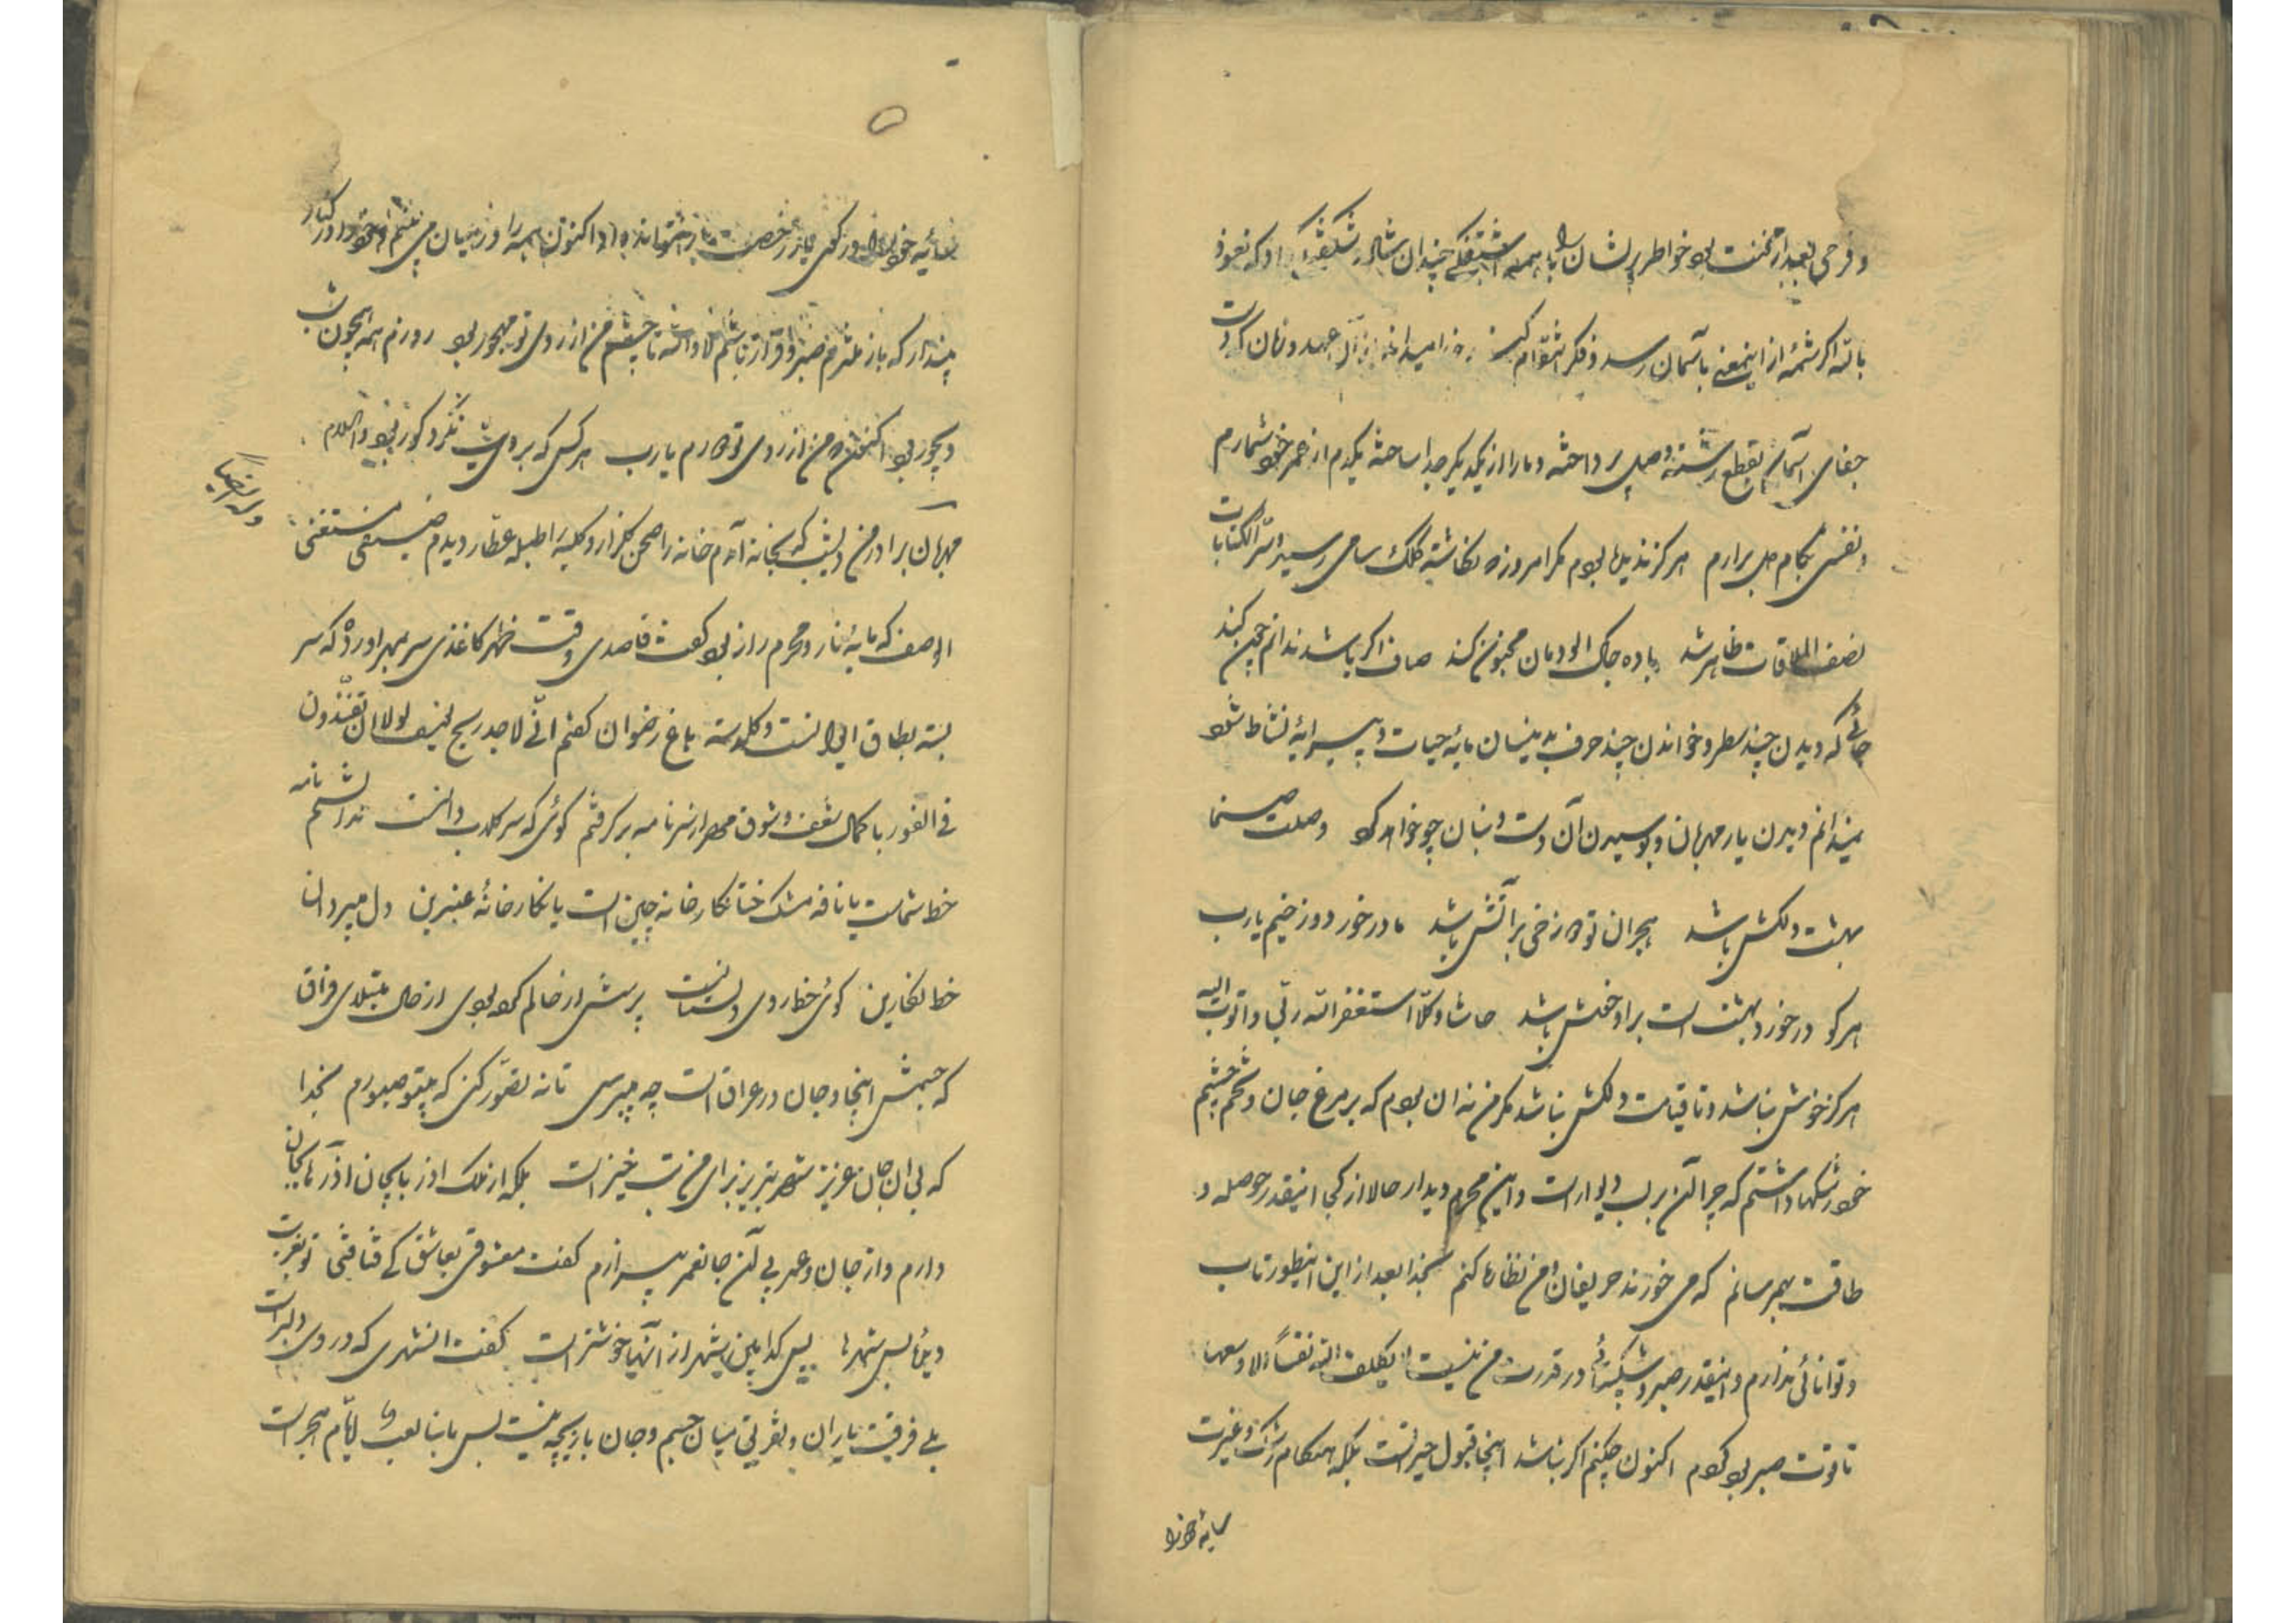 و فرحی بعد از محنت بود خواطر پریشان را با همه آشفتگی چندان شاد و شکفته کرد که نعوذ
بالله اگر شمهٔ از اینمعنی بآسمان رسد و فکر انتقام کند
جفای آسمان بقطع رشته وصل پرداخته و ما را از یکدیگر جدا ساخته یکدم از عمر خود شمارم
و نفسی بکام دل برارم هرگز ندیده بودم مگر امروز که نگاشته کلک سامی رسید و سر الکتاب
نصف الملاقات ظاهر شد باده خاک آلودمان مجنون کند صاف اگر باشد ندانم چون کند
جائی که دیدن چند سطر و خواندن چند حرف بدینسان مایهٔ حیات و پیرایهٔ نشاط شود
نمیدانم دیدن یار مهربان و بوسیدن آن دست و بنان چو خواهد کرد وصلت صنما
بهشت دلکش باشد هجران تو دوزخی پر آتش باشد ما در خور دوزخیم یا رب
هر کو در خورد بهشت است براو خوش باشد حاشا و کلا استغفر الله ربی و اتوب الیه
هرگز خوش نباشد و تا قیامت دلکش نباشد مگر من نه آن بودم که بر مرغ جان و تخم چشم
خود رشکها داشتم که چرا آن بر لب دیوار است و این محرم دیدار حالا از کجا اینقدر حوصله و
طاقت بهم رسانم که می خورند حریفان و من نظاره کنم بخدا بعد از این اینطور تاب
و توانائی ندارم و اینقدر صبر و شکیبائی در قدرت من نیست لا یکلف الله نفساً الا وسعها
تا قوت صبر بود کردم اکنون چکنم اگر نباشد اینجا قبول حیرتست بلکه هنگام رشک و غیرت
سایهٔ خود را
سایهٔ خود را در کوی یار رخصت
پندار که باز من صبر و قرار باشم لا والله تا چشم من از روی تو مهجور بود روزم همه چون شب
دیجور بود اکنون که من از روی تو دورم یا رب هر کس که برویت نگرد کور بود والسلام
وله ایضاً
مهربان برادر من دیشب که بخانه آمدم خانه را صحن گلزار و کلبه را طبلهٔ عطار دیدم ضیفی مستغنی
الوصف که مایهٔ ناز و محرم راز بود گفت قاصدی وقت ظهر کاغذی سر بمهر آورده که سر
بسته بطاق ایوانست و گلدسته باغ رضوان گفتم انی لاجد ریح یوسف لولا ان تفندون
فی الفور با کمال شعف و شوق مهر از سر نامه برگرفتم گوئی که سر گلابدانست ندانستم نامه
خط شماست یا نافه مشک ختا نگارخانه چین است یا نگارخانهٔ عنبرین دل میبرد آن
خط نگارین گوئی خط روی دلستانست پرسش از حالم کرده بودی از حال مبتلای فراق
که جسمش اینجا و جان در عراق است چه میپرسی تا نه تصور کنی که بیتو صبورم بخدا
که بی ان جان عزیز شهر تبریز برای من تب خیز است بلکه از ملک آذربایجان آذرها بجان
دارم و از جان و عمر بی آن جان عمر بیزارم گفت معشوقی بعاشق کی فتا فتی تو بغربت
دیدهٔ بس شهرها پس کدامین شهر از آنها خوشتر است گفت آنشهری که در وی دلبر است
بلی فرقت یاران و تفریق میان جسم و جان بازیچه نیست لیس ما بنا لعب ایام هجر است